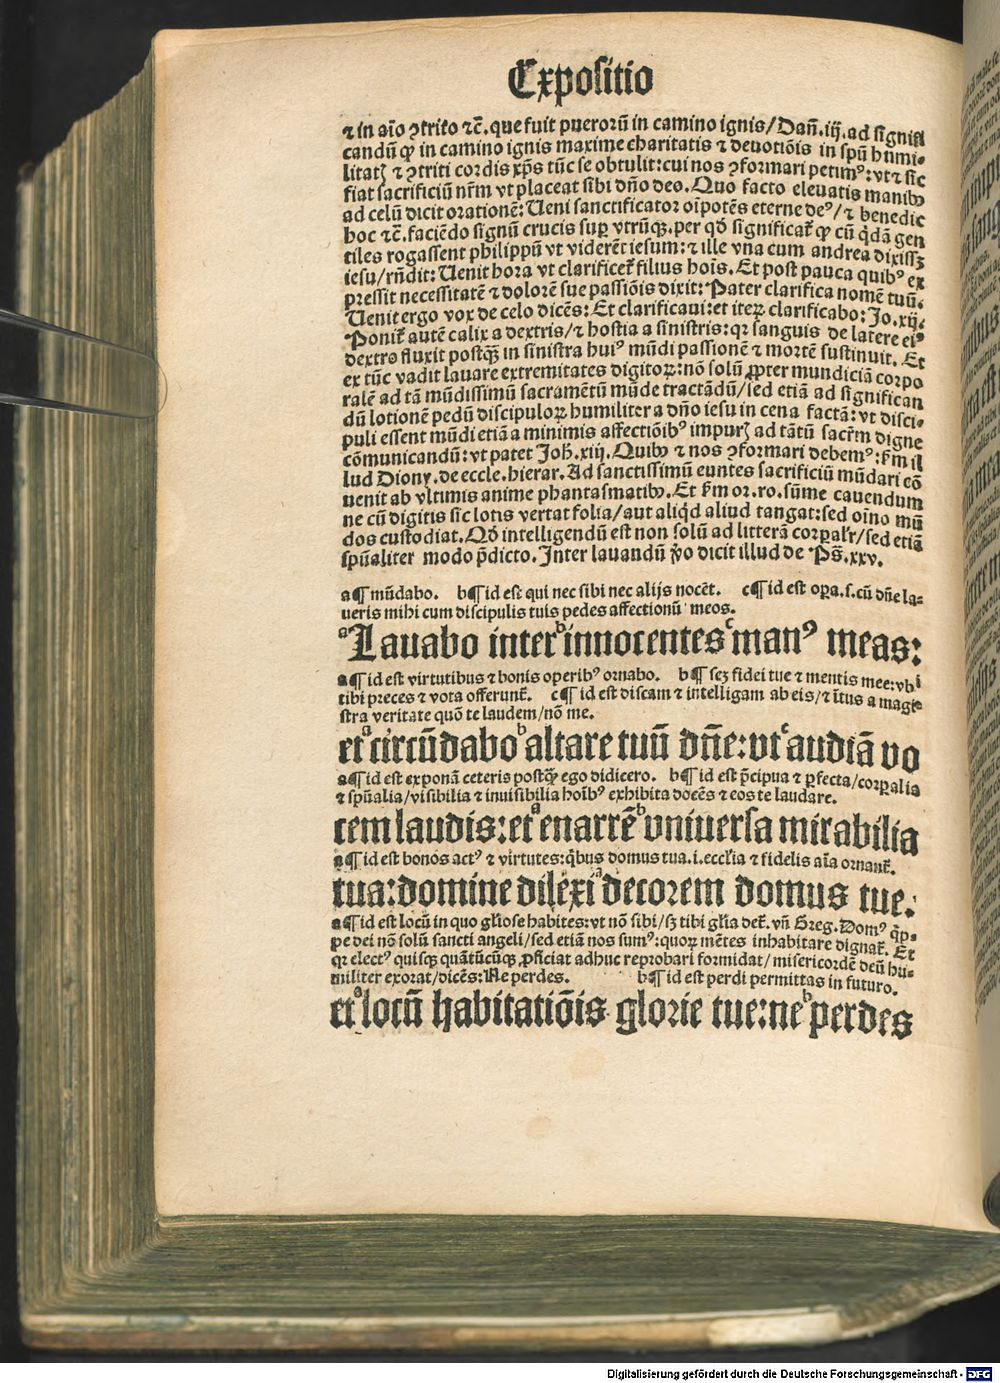 Expositio
⁊ in aīo ꝯtrito ⁊c̄. que fuit pueroꝛū in camino ignis/ Dañ. iij. ad signifi
candū ꝙ in camino ignis maxime charitatis ⁊ deuotiōis in spū humi⸗
litatꝭ ⁊ ꝯtriti cordis xp̄s tūc se obtulit: cui nos ꝯformari petimꝰ: vt ⁊ sic
fiat sacrificiū nr̄m vt placeat sibi dño deo. Quo facto eleuatis manibꝰ
ad celū dicit orationē: Ueni sanctificator oīpotēs eterne deꝰ/ ⁊ benedic
hoc ⁊c̄. faciēdo signū crucis suꝑ vtrūqꝫ. per qḋ significat᷑ ꝙ cū q̇dā gen
tiles rogassent philippū vt viderēt iesum: ⁊ ille vna cum andrea dixissꝫ
iesu/ rñdit: Uenit hora vt clarificet᷑ filius hoīs. Et post pauca quibꝰ ex
pressit necessitatē ⁊ dolorē sue passiōis dixit: Pater clarifica nomē tuū.
Uenit ergo vox de celo dicēs: Et clarificaui: et iteꝝ clarificabo: Jo. xij.
Ponit᷑ autē calix a dextris/ ⁊ hostia a sinistris: qꝛ sanguis de latere eiꝰ
dextro fluxit postqꝫ in sinistra huiꝰ mūdi passionē ⁊ mortē sustinuit. Et
ex tūc vadit lauare extremitates digitoꝝ: nō solū ꝓpter mundiciā corpo
ralē ad tā mūdissimū sacramētū mūde tractādū/ sed etiā ad significan
dū lotionē pedū discipuloꝝ humiliter a dño iesu in cena factā: vt disci⸗
puli essent mūdi etiā a minimis affectiōibꝰ impurꝭ ad tātū sacr̄m digne
cōmunicandū: vt patet Joh̄. xiij. Quibꝰ ⁊ nos ꝯformari debemꝰ: ẜm il
lud Diony. de eccle. hierar. Ad sanctissimū euntes sacrificiū mūdari cō
uenit ab vltimis anime phantasmatibꝰ. Et ẜm or. ro. sūme cauendum
ne cū digitis sic lotis vertat folia/ aut aliq̇d aliud tangat: sed oīno mū
dos custodiat. Qḋ intelligendū est non solū ad litterā corꝑalr̄/ sed etiā
spūaliter modo p̄dicto. Inter lauandū v̊o dicit illud de Pš. xxv.
a¶ mūdabo. b¶ id est qui nec sibi nec alijs nocēt. c¶ id est oꝑa. s. cū dñe la⸗
ueris mihi cum discipulis tuis pedes affectionū meos.
ᵃLauabo inter ᵇinnocentes ᶜmanꝰ meas:
a¶ id est virtutibus ⁊ bonis operibꝰ ornabo. b¶ scꝫ fidei tue ⁊ mentis mee: vbi
tibi preces ⁊ vota offerunt᷑. c¶ id est discam ⁊ intelligam ab eis/ ⁊ ītus a magi
stra veritate quō te laudem/ nō me.
et ᵃcircūdabo ᵇaltare tuū dñe: vt ᶜaudiā vo
a¶ id est exponā ceteris postqꝫ ego didicero. b¶ id est p̄cipua ⁊ ꝑfecta/ corꝑalia
⁊ spūalia/ visibilia ⁊ inuisibilia hoībꝰ exhibita docēs ⁊ eos te laudare.
cem laudis: et ᵃenarrē ᵇvniuersa mirabilia
a¶ id est bonos actꝰ ⁊ virtutes: q̇bus domus tua. i. eccl̄ia ⁊ fidelis aīa ornant᷑.
tua: domine dilexi ᵃdecorem domus tue:
a¶ id est locū in quo gl̄iose habites: vt nō sibi/ sꝫ tibi gl̄ia det᷑. vñ Greg. Domꝰ q̇p⸗
pe dei nō solū sancti angeli/ sed etiā nos sumꝰ: quoꝝ mētes inhabitare dignat᷑. Et
qꝛ electꝰ quisqꝫ quātūcūqꝫ ꝓficiat adhuc reprobari formidat/ misericordē deū hu⸗
militer exorat/ dicēs: Ne perdes. b¶ id est perdi permittas in futuro.
et ᵃlocū habitatiōis glorie tue: ne ᵇperdes
Digitalisierung gefördert durch die Deutsche Forschungsgemeinschaft - DFG